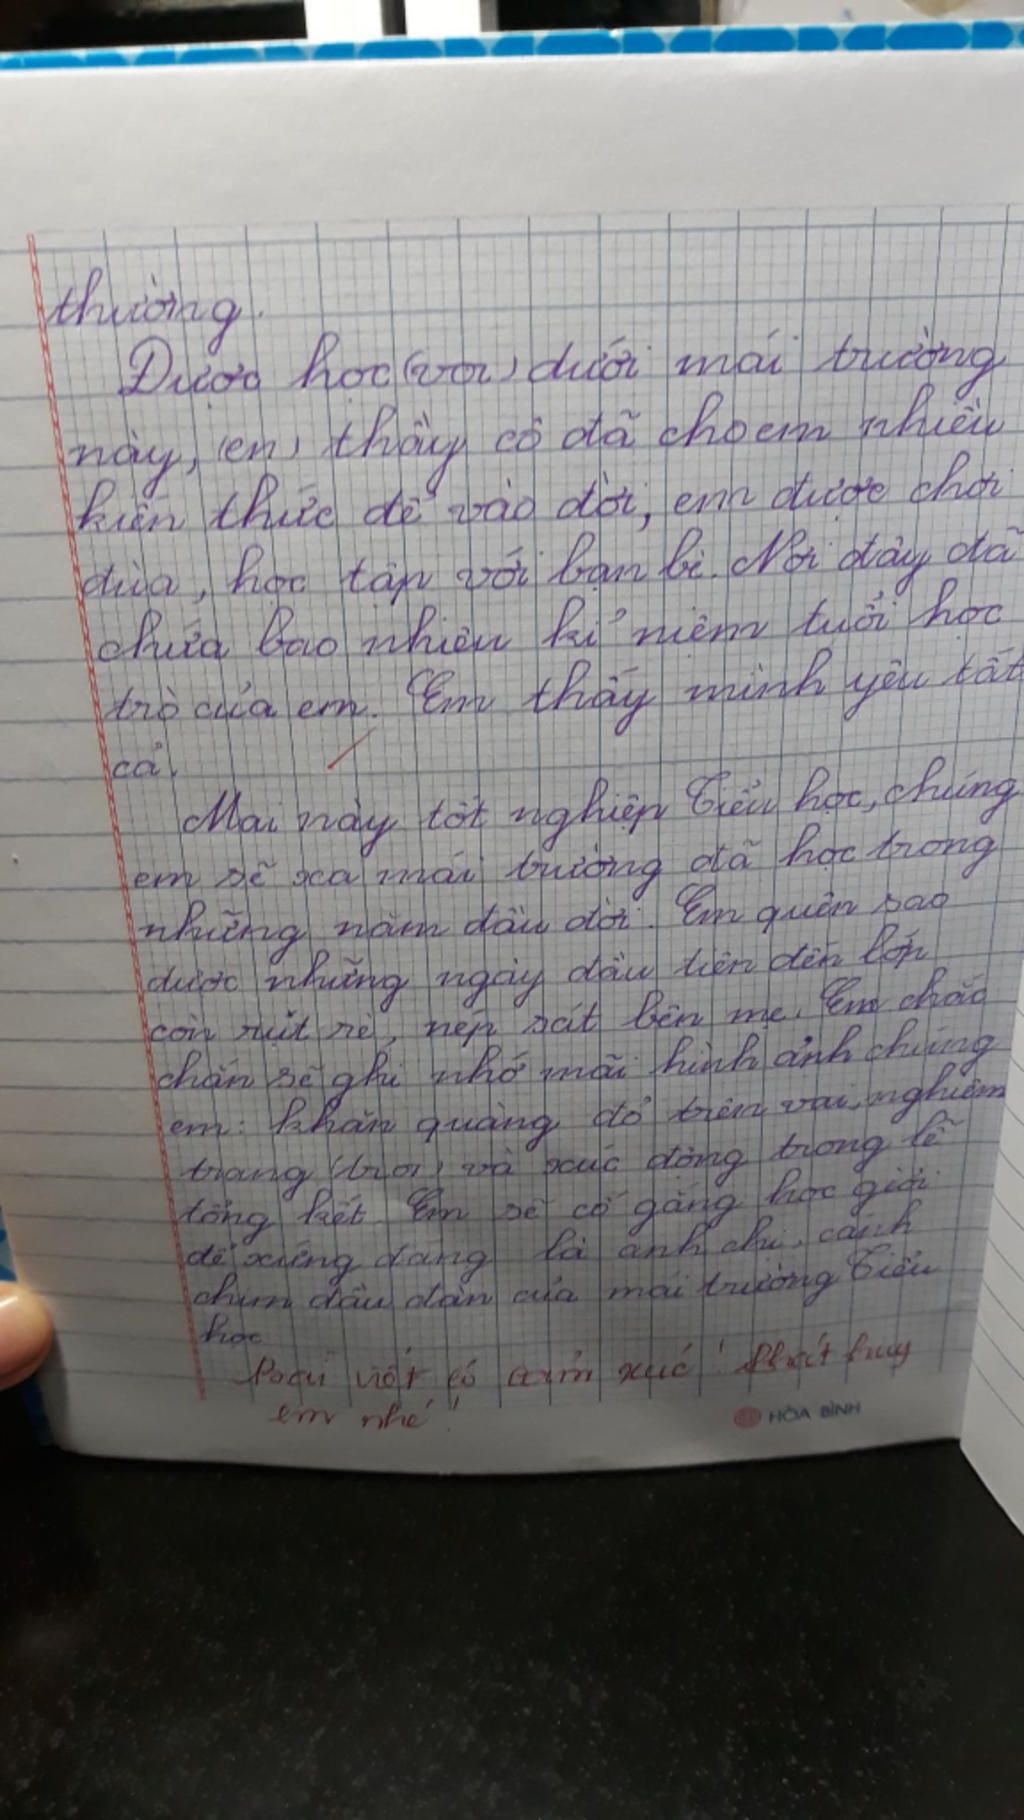 thường.
Được học (vơi) dưới mái trường
này, (en) thầy cô đã cho em nhiều
kiến thức để vào đời, em được chơi
đùa, học tập với bạn bè. Nơi đây đã
chứa bao nhiêu kỉ niệm tuổi học
trò của em. Em thấy mình yêu tất
cả.
Mai này tốt nghiệp Tiểu học, chúng
em sẽ xa mái trường đã học trong
những năm đầu đời. Em quên sao
được những ngày đầu tiên đến lớp
còn rụt rè, nép sát bên mẹ. Em chắc
chắn sẽ ghi nhớ mãi hình ảnh chúng
em: khăn quàng đỏ trên vai, nghiêm
trang và xúc động trong lễ
tổng kết. Em sẽ cố gắng học giỏi
để xứng đáng là anh chị, cánh
chim đầu đàn của mái trường Tiểu
học
Bài viết có cảm xúc! Phát huy
em nhé!
HÒA BÌNH